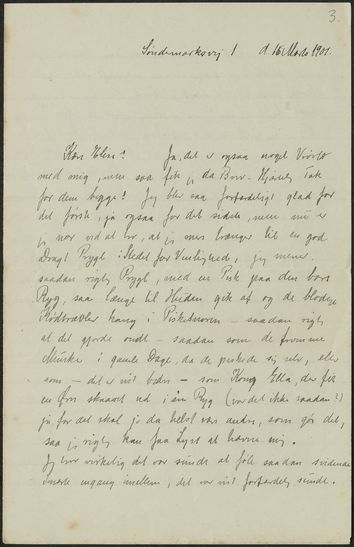 3.
Søndermarksvej 1 d. 16 Marts 1901.
Kære Elise! Ja, det er ogsaa noget Værre
med mig, men saa fik jeg da Brev. Hjertelig Tak
for dem begge! Jeg blev saa forfærdeligt glad for
det første, ja ogsaa for det sidste, men nu er
jeg nær ved at tro, at jeg mere trænger til en god
Dragt Prygl i Stedet for Venlighed, jeg mener
saadan rigtig Prygl, med en Pisk paa den bare
Ryg, saa længe til Huden gik af og de blodige
Kødtrævler hang i Piskesnoren – saadan rigtig
at det gjorde ondt – saadan som de fromme
Munke i gamle Dage, da de piskede sig selv, eller
som – det er vist bedre – som Kong Ella, der fik
en Ørn skaaret ud i sin Ryg (var det ikke saadan?)
ja, for det skal jo da helst være andre, som gør det,
saa jeg rigtig kan faa Lyst at hævne mig.
Jeg tror virkelig det var sundt at føle saadan svidende
Smerte engang imellem, det var vist forfærdelig sundt.